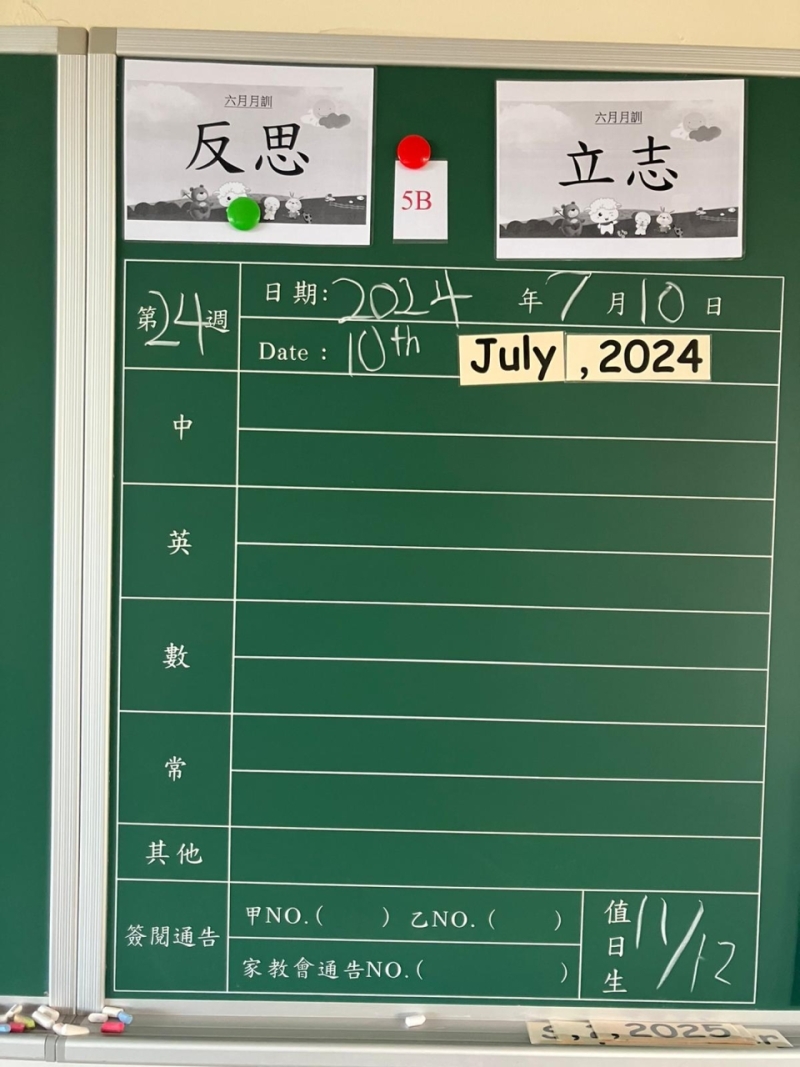 六月月訓
反思
5B
六月月訓
立志
第24週
日期: 2024 年 7 月 10 日
Date : 10th July , 2024
中
英
數
常
其他
簽閱通告
甲NO.( ) 乙NO.( )
家教會通告NO.( )
值日生 11/12
, 2025